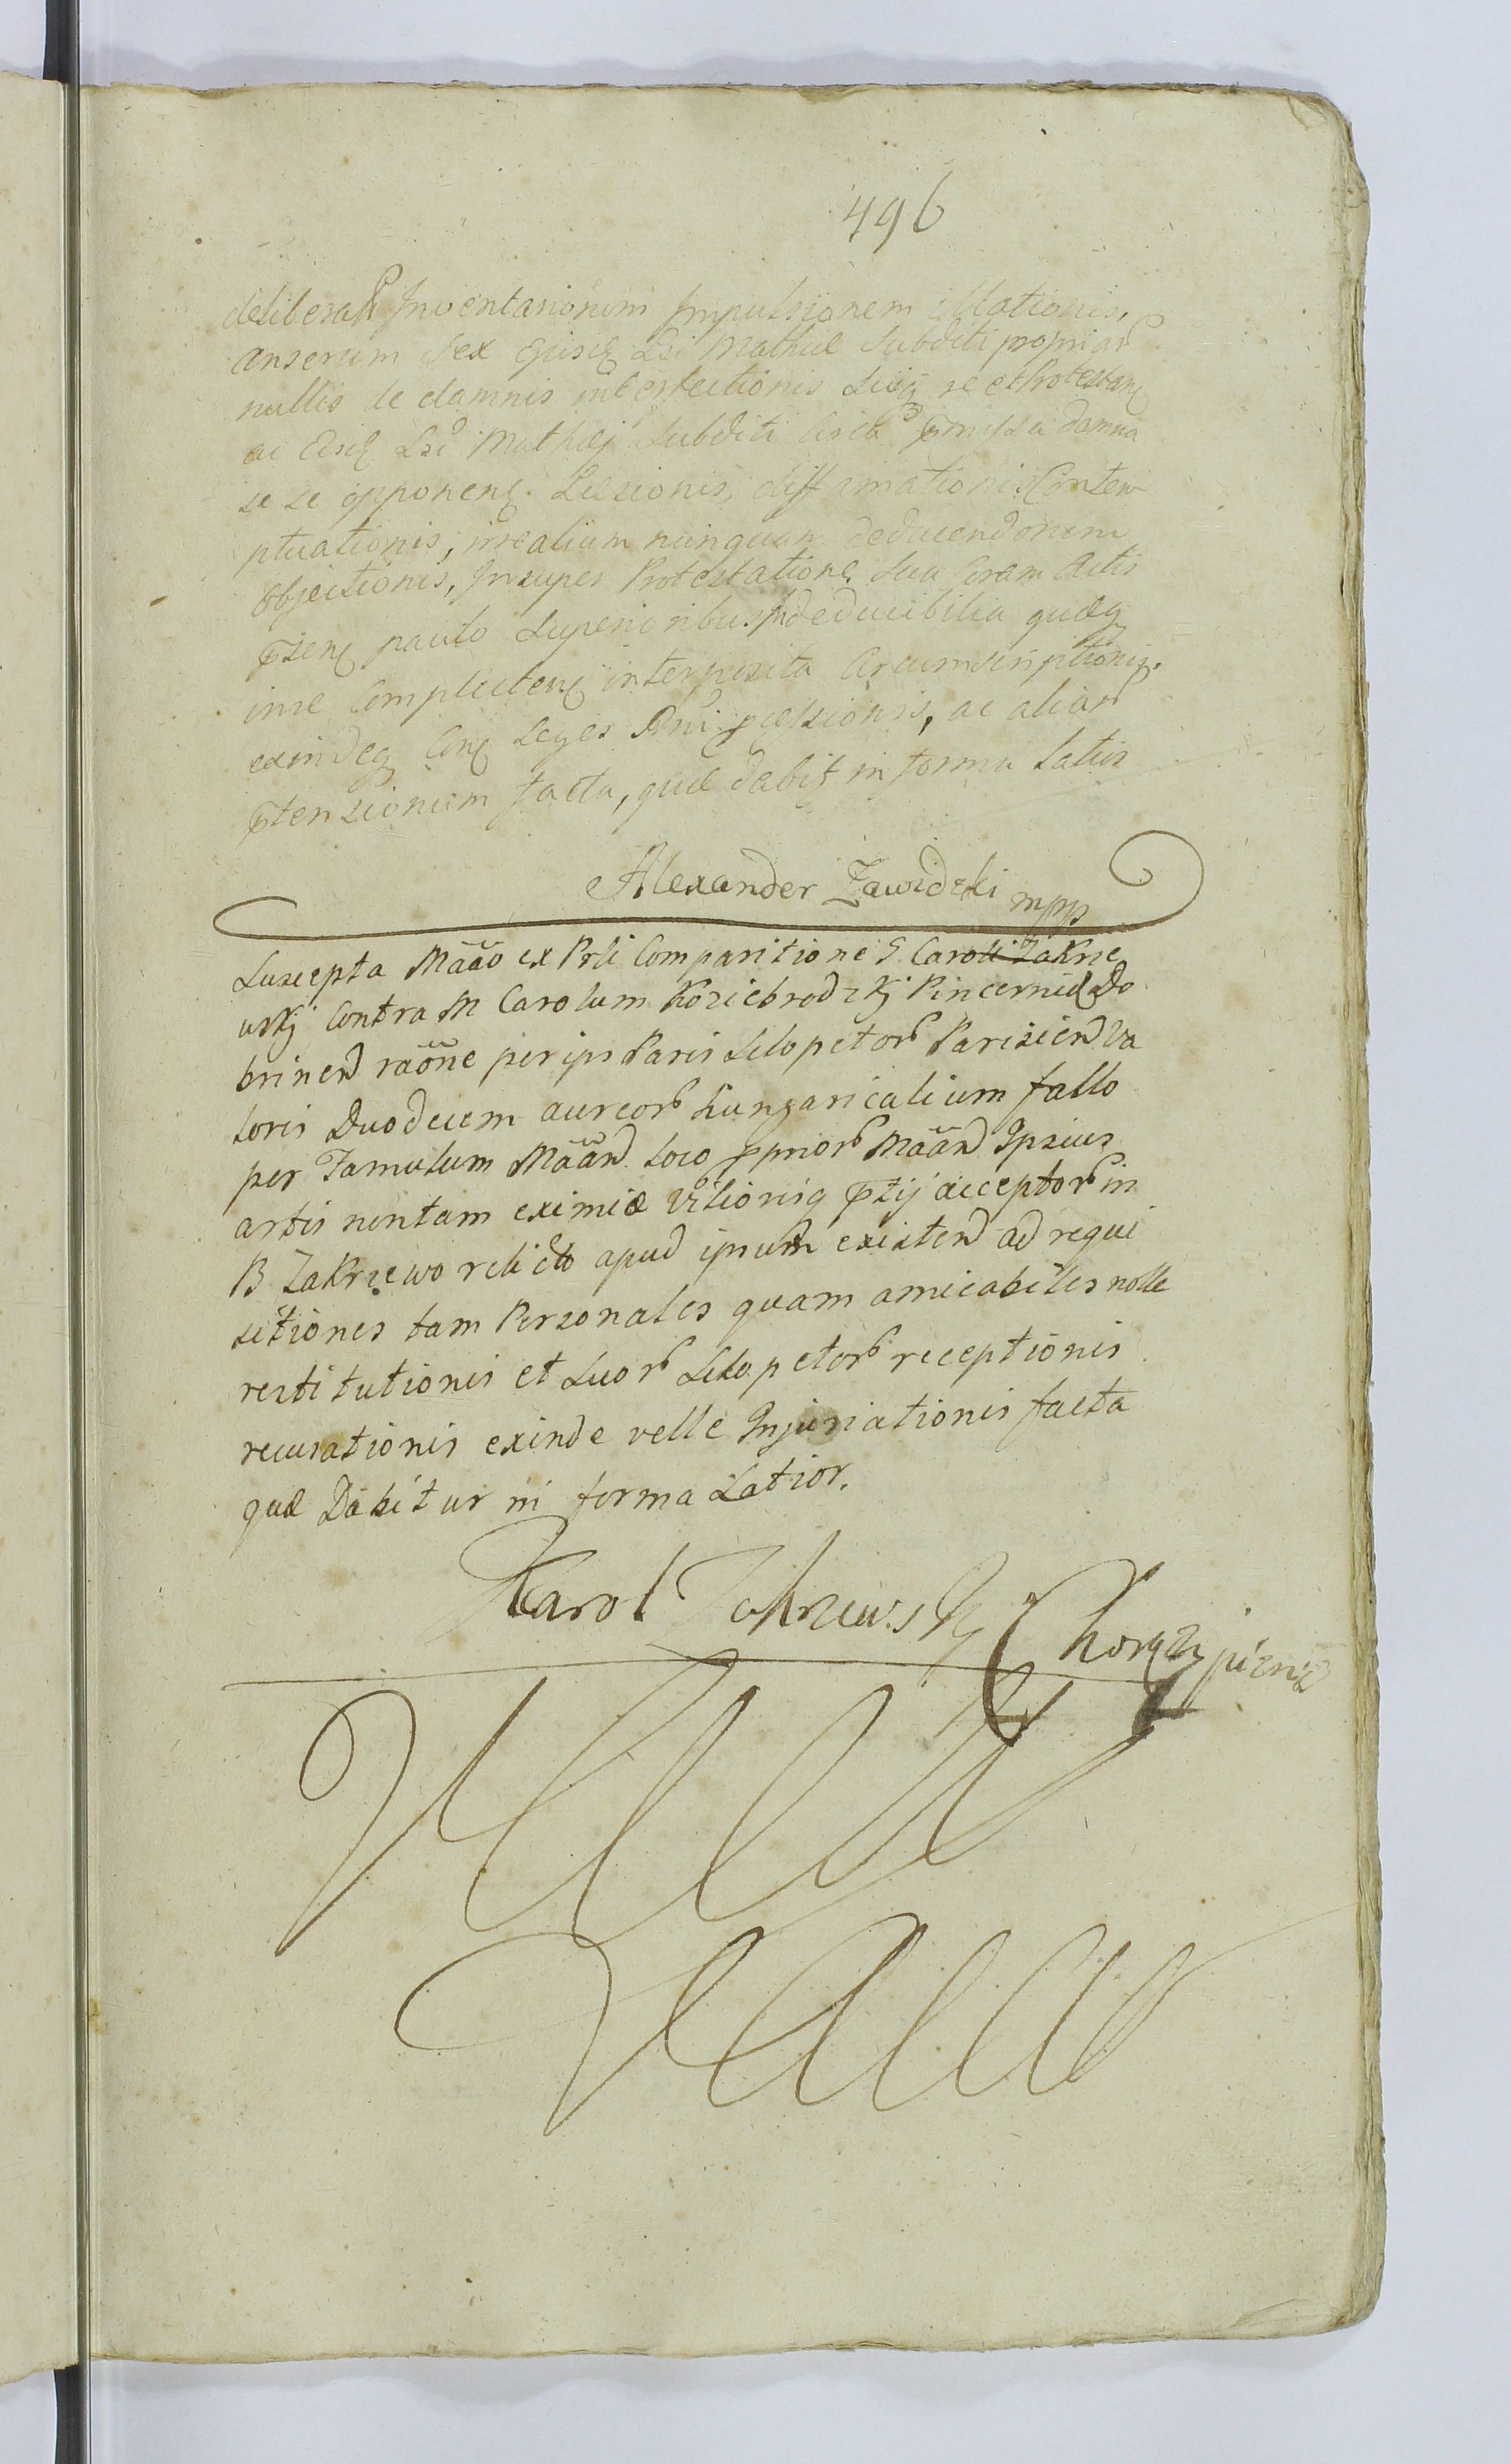 496
deliberatt Inventarionum Impulsionem illationis,
anserum sex ejusd Lsi Mathiæ Subditi propriar
nullis de damnis interfectionis suoq se et Protestan
ac ejusd Lsi Mathæj Subditi circa præmissa damna
se se opponen. Læsionis, diffamationis Contem
ptuationis, irrealium nunquam deducendorum
objectionis, Insuper Protestatione sua coram Actis
præsen paulo Superioribus indeducibilia quæq
in se Complecten interposita Circumscriptionis.
exindeq Con Leges Dni processionis, ac aliar
prætensionum facta, quæ dabit in forma Latis
Alexander Zawidzki mpp
Suscepta Mããõ ex Prli Comparitione G Caroli Zakrze
wskj Contra M Carolum Koziebrodzkj Pincernid Do
brinen raõne per ips Paris Sclopetor Parisien va
loris Duodecem aureor hungaricalium fallo
per Famulum Mããn loco prior Mããn Ipsius
artis non tam eximiæ Viliorisq prætij acceptor in
B Zakrzewo relicto apud ipsum existen ad requi
sitiones tam Personales quam amicabiles nolle
restitutionis et Suor Sclopetor receptionis
recusationis exinde velle Injuriationis facta
quæ Dabitur in forma Latior.
Karol Zakrzewsky Chorąży